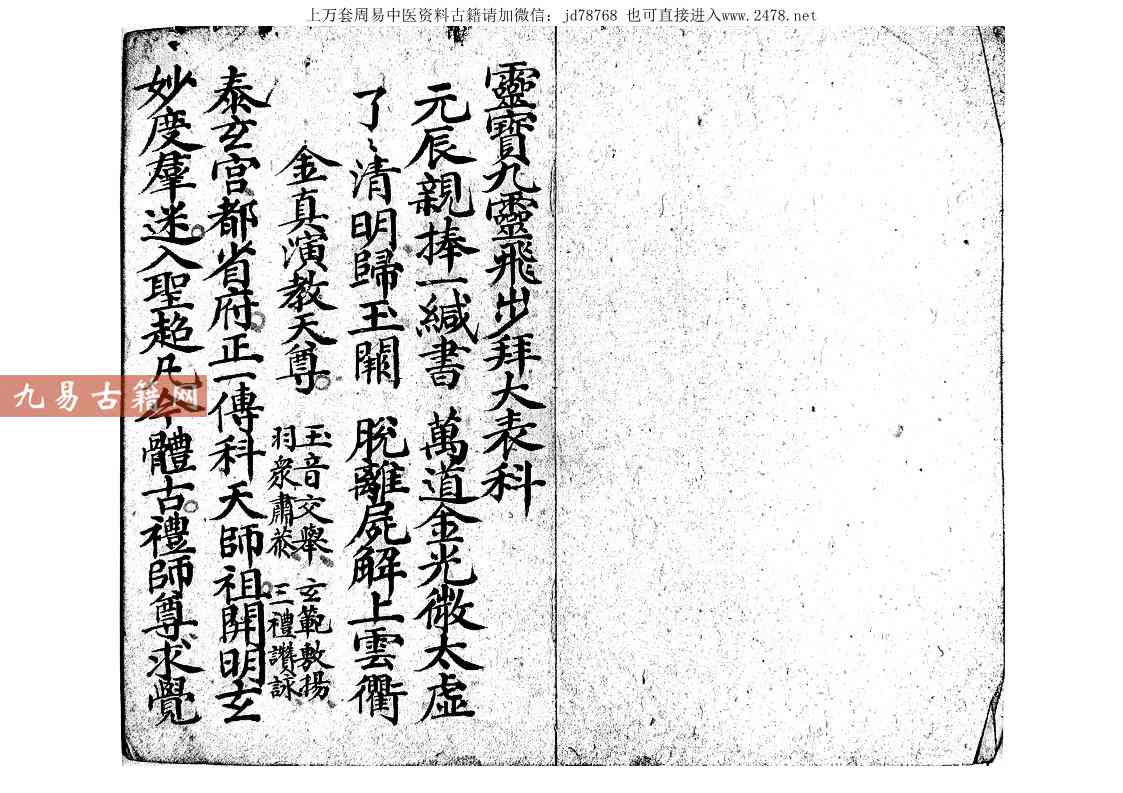 上万套周易中医资料古籍请加微信：jd78768 也可直接进入www.2478.net
靈寶九靈飛步拜大表科
元辰親捧一緘書 萬道金光徹太虛
了〻清明歸玉闕 脫離屍解上雲衢
金真演教天尊 玉音交舉 玄範敷揚
羽衆肅恭 三禮讚詠
泰玄宫都省府正一傳科天師祖開明玄
妙度羣迷入聖超凡今體古禮師尊求覺
九易古籍网